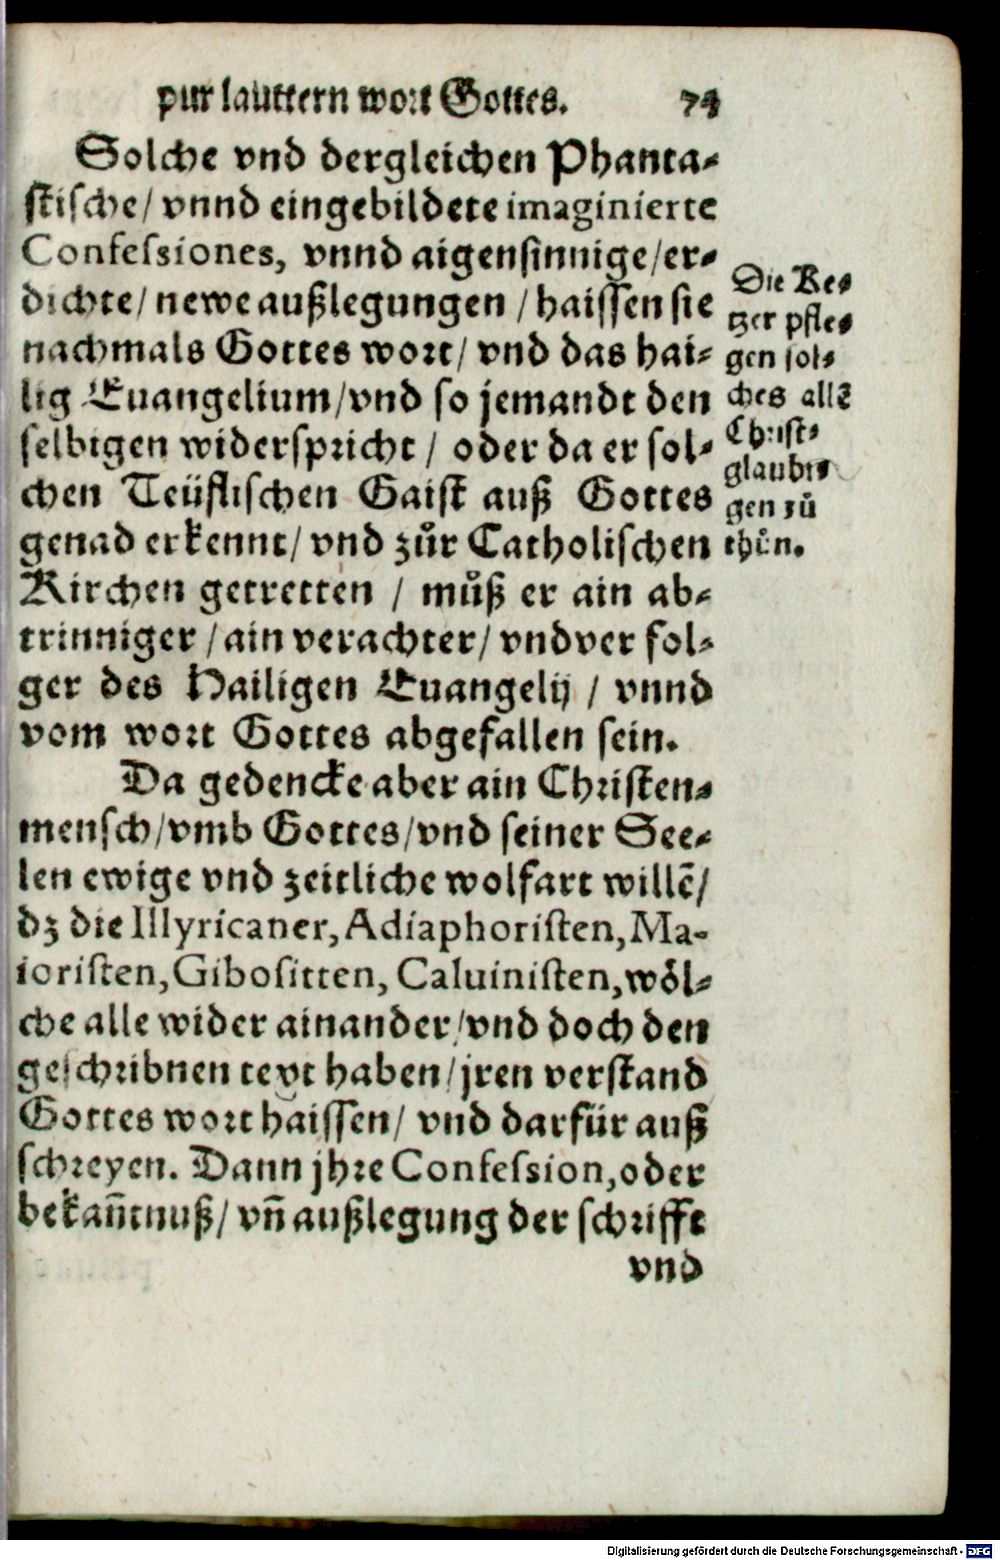 pur lauttern wort Gottes. 74
Solche vnd dergleichen Phanta-
stische/ vnnd eingebildete imaginierte
Confessiones, vnnd aigensinnige/er-
dichte/ newe außlegungen / haissen sie
nachmals Gottes wort/ vnd das hai-
lig Euangelium/vnd so jemandt den
selbigen widerspricht / oder da er sol-
chen Teüflischen Gaist auß Gottes
genad erkennt/ vnd zůr Catholischen
Kirchen getretten / můß er ain ab-
trinniger /ain verachter/ vndver fol-
ger des Hailigen Euangelij / vnnd
vom wort Gottes abgefallen sein.
Die Ke-
tzer pfle-
gen sol-
ches allē
Christ-
glaubi-
gen zů
thůn.
Da gedencke aber ain Christen-
mensch/vmb Gottes/vnd seiner See-
len ewige vnd zeitliche wolfart willē/
dz die Illyricaner, Adiaphoristen, Ma-
ioristen, Gibositten, Caluinisten, wöl-
che alle wider ainander/vnd doch den
geschribnen text haben/jren verstand
Gottes wort haissen/ vnd darfür auß
schreyen. Dann jhre Confession, oder
bekañtnuß/ vñ außlegung der schrifft
vnd
Digitalisierung gefördert durch die Deutsche Forschungsgemeinschaft - DFG